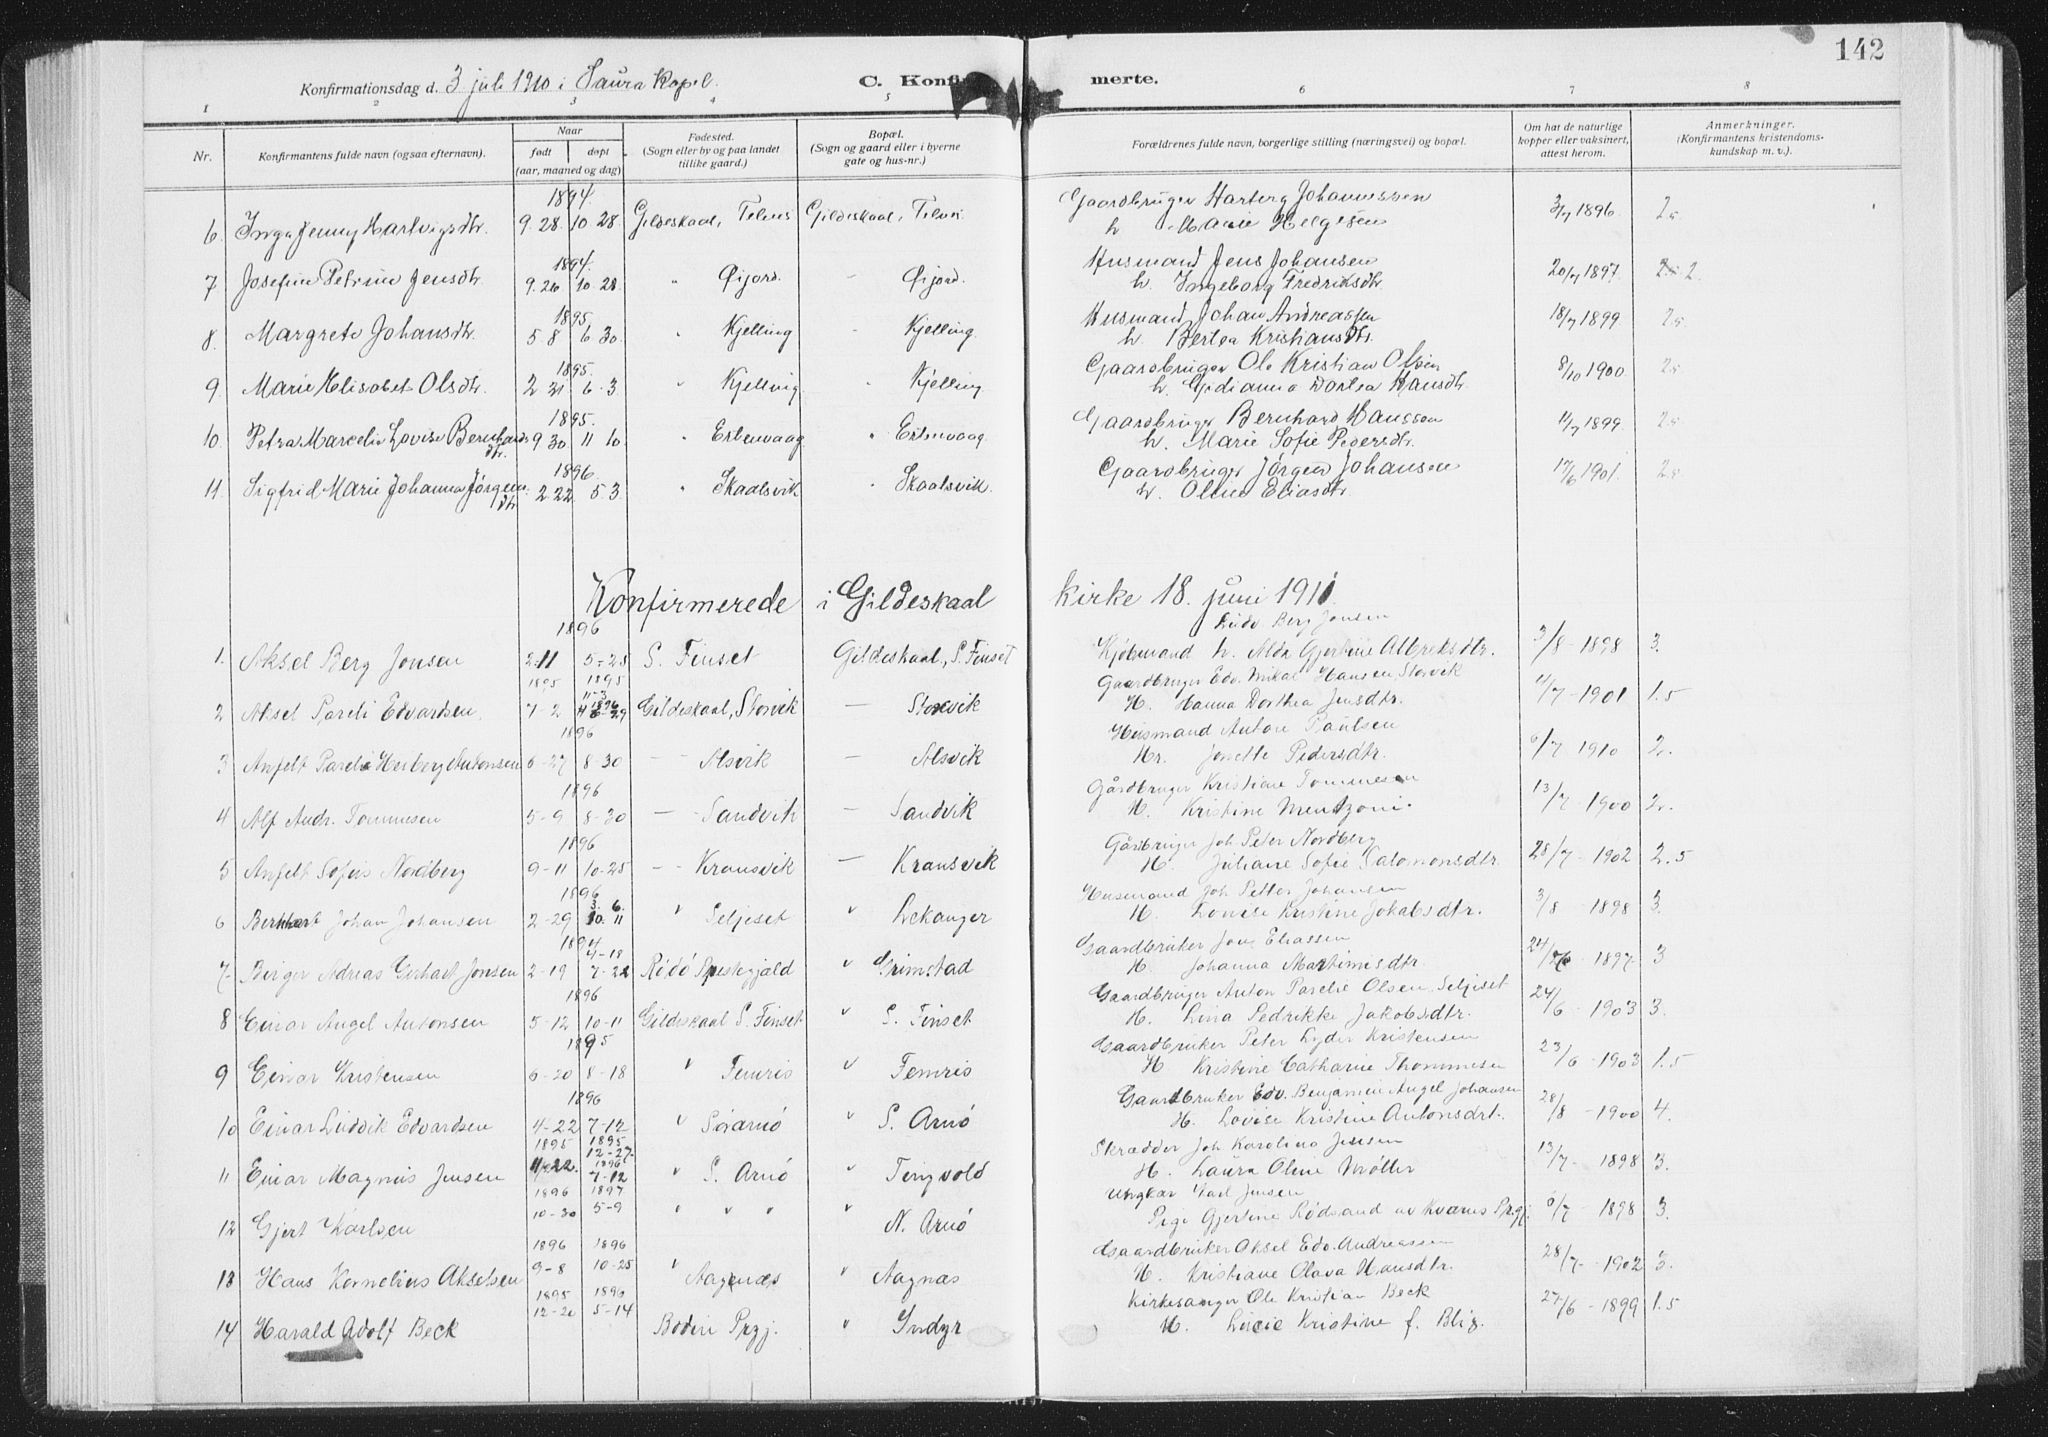 142
Konfirmationsdag d. 3 juli 1910 i Saura Kapel.
C. Konfirmerte.
1 2 3 4 5 6 7 8
Nr. Konfirmantens fulde navn (ogsaa efternavn). Naar født døpt (aar, maaned og dag) Fødested. (Sogn eller by og paa landet tillike gaard.) Bopæl. (Sogn og gaard eller i byerne gate og hus-nr.) Forældrenes fulde navn, borgerlige stilling (næringsvei) og bopæl. Om hat de naturlige kopper eller vaksinert, attest herom. Anmerkninger. (Konfirmantens kristendoms-kundskap m. v.).
1894.
6. Inga Jenny Hartvigsdtr. 9.28. 10.28. Gildeskaal, Gildeskaal, Gaardbruger Johannessen 1896.
h. Marie Helgesen
1894.
7. Josefine Petrine Jensdtr. 9.26 10.28. " Øijord. - Øijord. Husmand Jens Johansen 20/7 1897. 2.
h. Ingeborg Fredriksdtr.
1895
8. Margrete Johansdtr. 5 8 6 30. " Kjelling - Kjelling. Husmand Johan Andreassen 18/7 1899
h. Kristiansdtr.
1895.
9. Marie Elisabet Olsdtr. 2 21 6.3. " Kjelling " Kjelling Gaardbruger Ole Kristian Olsen 8/10 1900.
h. Dortea Hansdtr.
1895.
10. Petra Marcelie Lovise Bernhards dtr. 9 30 11 10. " Ertenvaag " Ertenvaag. Gaardbruger Bernhard Hanssen 1899.
h. Marie Sofie Pedersdtr.
1896.
11. Sigfrid Marie Johanna Jørgens dtr. 2.22 5.3 " Skaalsvik " Skaalsvik. Gaardbruger Jørgen Johansen 17/6 1901.
h. Oline Eliasdtr.
Konfirmerede i Gildeskaal kirke 18. juni 1911.
1896 Berg Jonsen
1. Aksel Berg Jonsen 2-11 5-25 S. Finset Gildeskaal, S. Finset Kjøbmand h. Alda Gjertine Albrektsdtr. 3/8 - 1898 3.
1895 1895 Gaardbruger Edv. Mikal Hansen Storvik
2 Aksel Pareli Edvardsen. 7-2 Gildeskaal, Storvik — Storvik H. Hanna Dorthea Jensdtr. 11/7 - 1901 1.5
1896 Husmand Anton Paulsen
3 Anfelt Pareli Heiberg Antonsen 6-27 8-30 - - Alsvik — Alsvik Hr. Jonette Pedersdtr. 6/7 1910 2.
1896 Gårdbruger Kristiane Tommesen
4 Alf Andr. Tommesen 5-9 8-30 — Sandvik — Sandvik H. Kristine Mentzoni. 13/7 - 1900 2.
1896 Gårdbruger Joh. Peter Nordberg
5 Anfelt Sofus Nordberg 9-11 10-25 - - Kransvik — Kransvik H. Juliane Sofie Salomonsdtr. 28/7 - 1902 2.5
1896 Husmand Joh. Petter Johansen
3. 6.
6 Bernhart Johan Johansen 2-29 10.11 " Seljeset " Lekanger H. Lovise Kristine Jakobsdtr. 3/8 - 1898 3.
1894 Gaardbruker Jons Eliassen
7. Birger Adrias Gerhart Jonsen 2-19 7-22 Rödö Prestegjæld " Grimstad H. Johanna Martinusdtr. 24/6 - 1897. 3
1896 Gaardbruger Anton Parelie Olsen, Seljeset
8 Einar Angel Antonsen 5-12 10-11 Gildeskaal S. Finset " S. Finset H. Lina Pedrikke Jakobsdtr. 24/6 - 1903 3.
1895 Gaardbruker Peter Lyder Kristensen
9 Einar Kristensen 6-20 8-18 " Femris " Femris H Kristine Catharine Thommesen 23/6 - 1903 1.5
1896 Gaardbruker Edv. Benjamin Angel Johansen
10 Einar Ludvik Edvardsen 4-22 7-12 " Sørarnö " S. Arnö H. Lovise Kristine Antonsdrt. 28/8 - 1900 4.
1895 1895 Skrædder Joh Karolius Jensen
12-27.
11 Einar Magnus Jensen 4-22. 1896 7-12 " S. Arnö " Tingvold H. Laura Oline Møller 13/7 - 1898 3.
1896 1897 Ungkar Karl Jensen
12 Gjert Karlsen 10-30 5-9 " " " N. Arnö Pige Gjertine Rødsand av Kvarnes Prgj. 6/7 - 1898 3.
1896 1896 Gaardbruker Aksel Edv. Andreassen
13 Hans Kornelius Akselsen 9-8 10-25 " Aagenæs " Aagnas H. Kristiane Olava Hansdtr. 28/7 - 1902 3.
1895 1896 Kirkesanger Ole Kristian Beck
14 Harald Adolf Beck 12-20 5-14 Bodin Prgj. " Indyr H. Lucie Kristine f. Blix. 27/6 - 1899 1.5